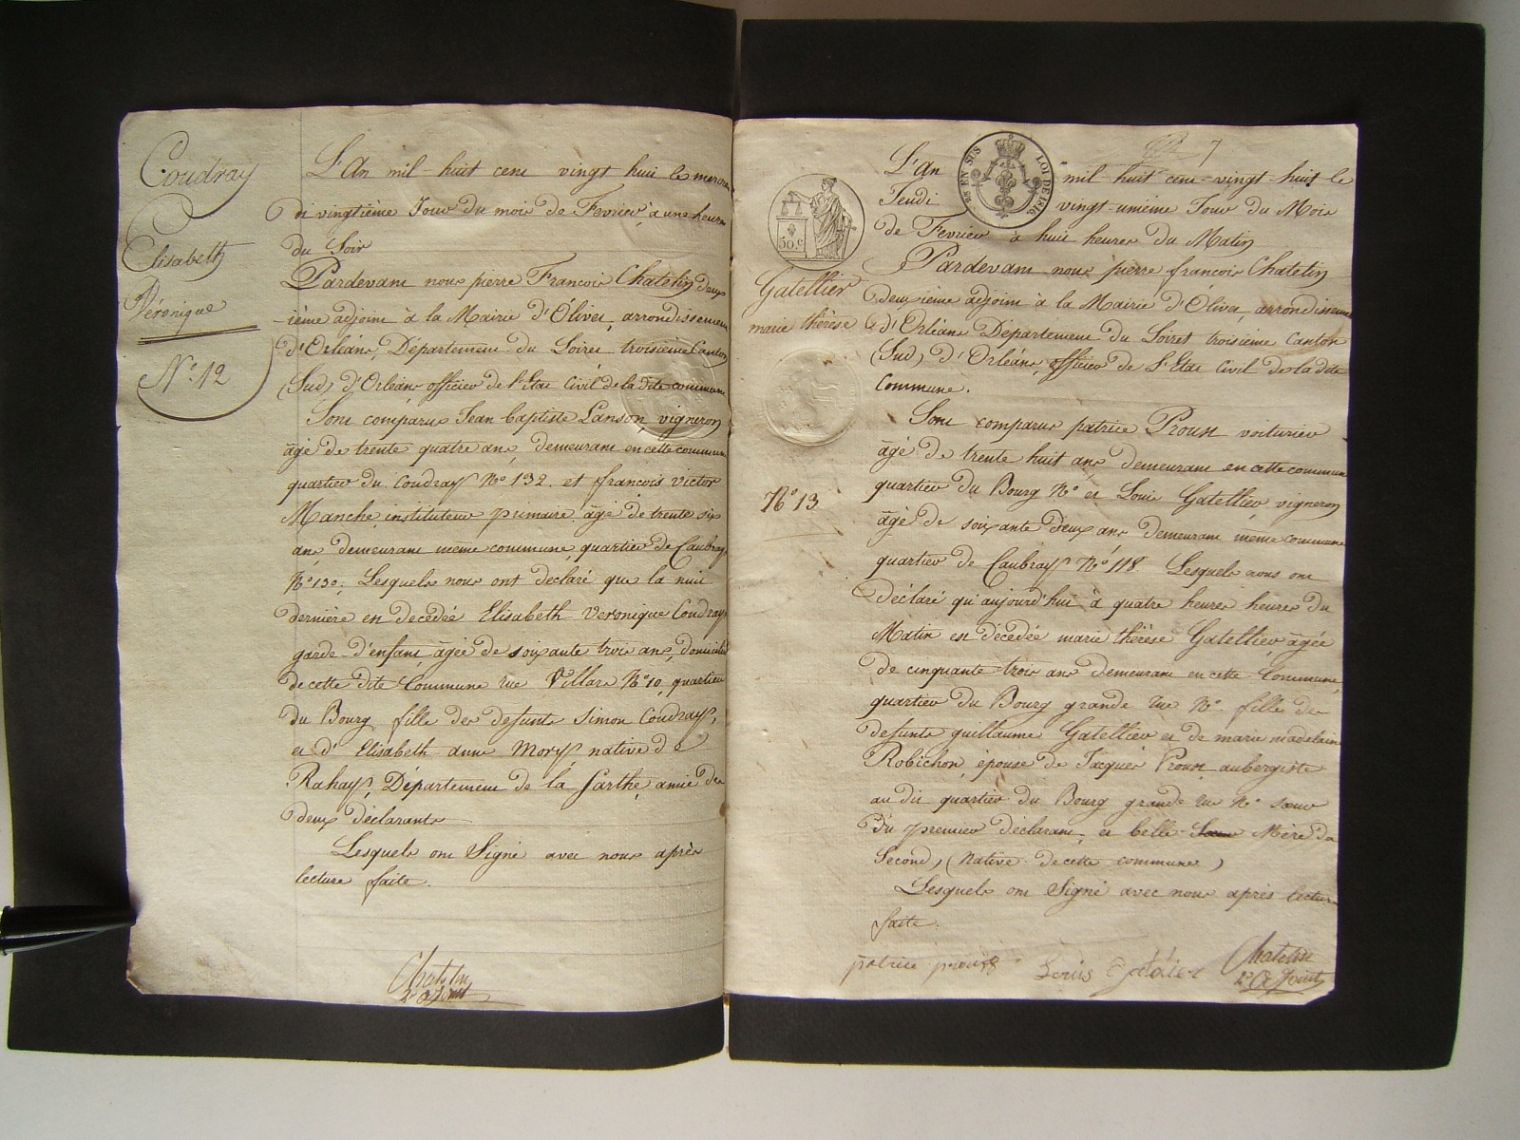 Coudray
Elisabeth
Véronique
N.º 12
L'An mil-huit cent vingt huit le mercre
di vingtième Jour du mois de Fevrier à une heure
du Soir
Pardevant nous pierre Francois Chatelin deux
-ième adjoint à la Mairie d'Olivet, arrondissement
d'Orléans, Département du Loiret troisième Canton
(Sud) d'Orléans, officier de l'Etat Civil de la dite commune
Sont comparus Jean baptiste Lanson, vigneron
âgé de trente quatre ans, demeurant en cette commune
quartier du Coudray Nº 132. et francois victor
Manche, instituteur primaire, âgé de trente six
ans demeurant meme commune, quartier de Caubray
Nº 130; Lesquels nous ont declaré que la nuit
dernière est decedée Elisabeth Veronique Coudray
garde-d'enfant, âgée de soixante trois ans, domiciliée
de cette dite Commune rue Villars Nº 10 quartier
du Bourg fille des defunts Simon Coudray,
et d'Elisabeth anne Mory, native de
Rahay, Département de la Sarthe, amie des
deux déclarants
Lesquels ont Signé avec nous après
lecture faite.
Chatelin
2e adjoint
7
30.c
EN SUS
LOI DE 1816
Gatellier
marie thérèse
Nº 13
L'An mil-huit cent-vingt-huit le
Jeudi vingt-unième Jour du Mois
de Fevrier à huit heures du Matin
Pardevant nous pierre francois Chatelin
deuxième adjoint à la Mairie d'Olivet, arrondissement
d'Orléans Département du Loiret troisième Canton
(Sud) d'Orléans, officier de l'Etat Civil de la dite
Commune.
Sont comparus patrice Proust voiturier
âgé de trente huit ans demeurant en cette commune
quartier du Bourg Nº et Louis Gatellier, vigneron
âgé de soixante deux ans demeurant meme commune
quartier de Caubray Nº 118 Lesquels nous ont
déclaré qu'aujourd'hui à quatre heures heures du
Matin est décédée marie thérèse Gatellier, âgée
de cinquante-trois ans demeurant en cette Commune,
quartier du Bourg grande rue Nº fille des
defunts guillaume Gatellier et de marie madelaine
Robichon, épouse de Jacques Proust aubergiste
au dit quartier du Bourg grande rue Nº soeur
du premier déclarant, et belle-Soeur Mère du
Second, (Native de cette commune)
Lesquels ont Signé avec nous après lecture
faite.
patrice proust Louis Gatelier Chatelin
2e adjoint